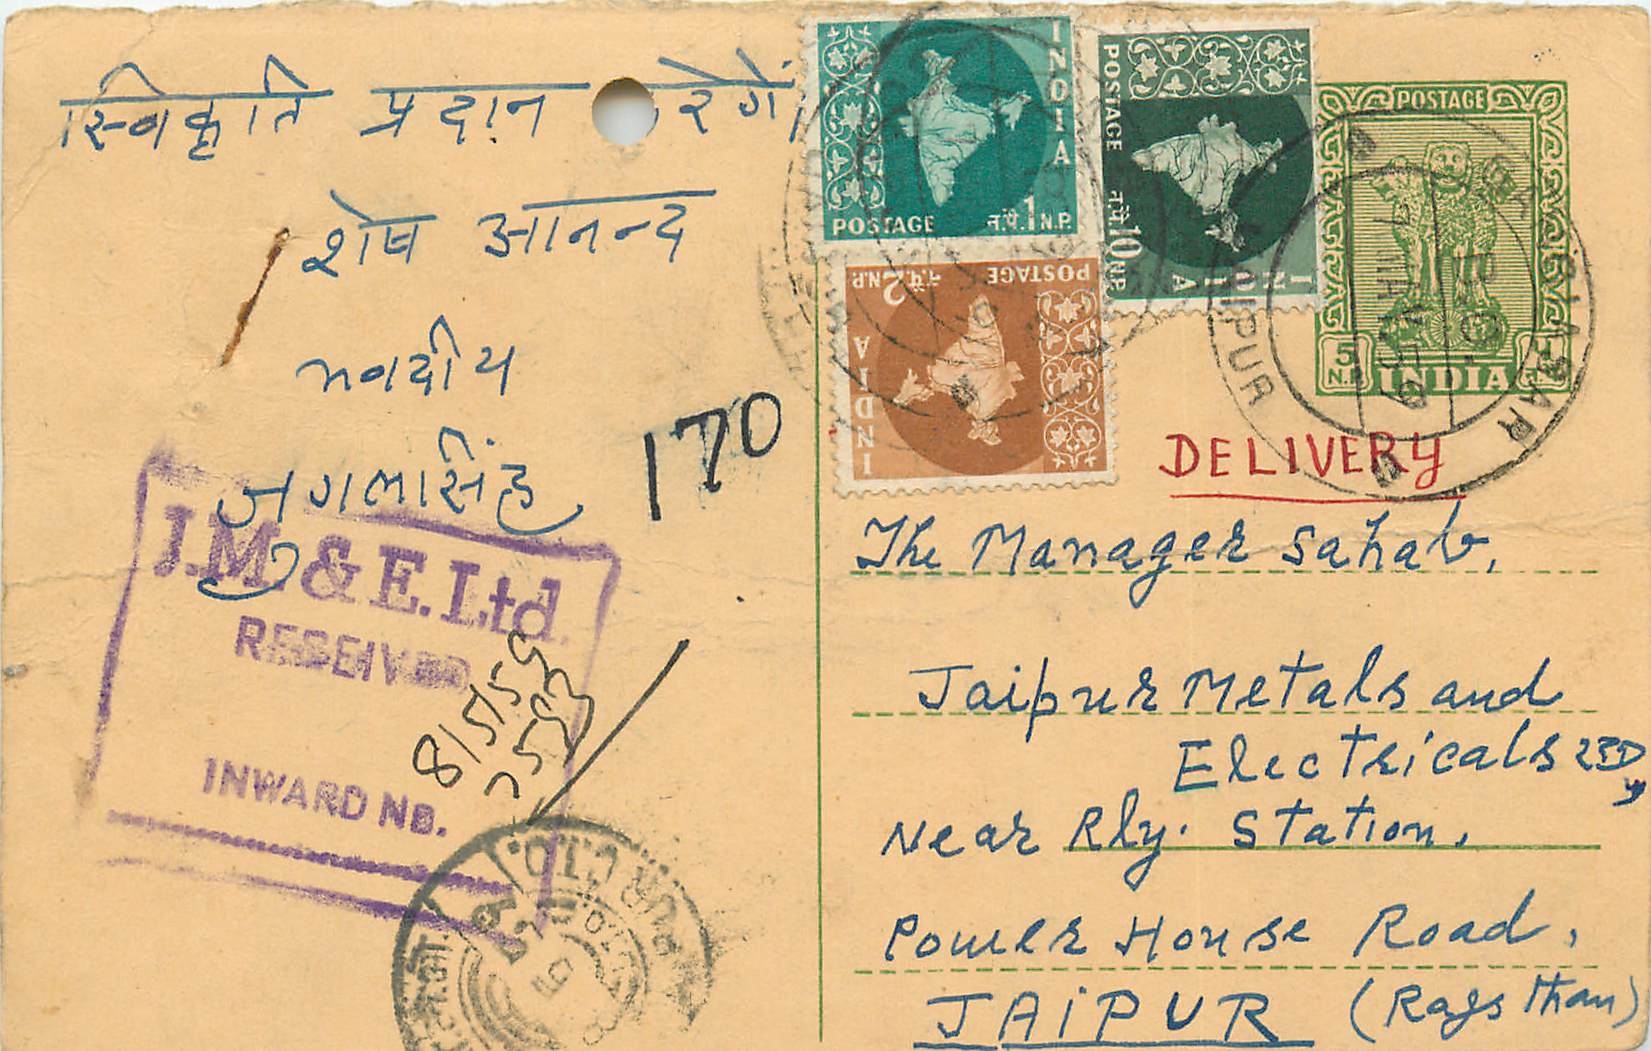 स्विकृति प्रदान करेगें।
शेष आनन्द
भवदीय
जुगलसिंह
170
J.M. & E. Ltd.
RECEIVED
8/5/59
2593
INWARD NO.
INDIA
POSTAGE न.पै.1 N.P.
INDIA
POSTAGE न.पै.10 N.P.
INDIA
POSTAGE न.पै.2 N.P.
POSTAGE
5 N.P.
INDIA
7 MAY 59
DELIVERY
The Manager Sahab,
Jaipur Metals and
Electricals
Near Rly. Station,
Power House Road,
JAIPUR (Rajsthan)